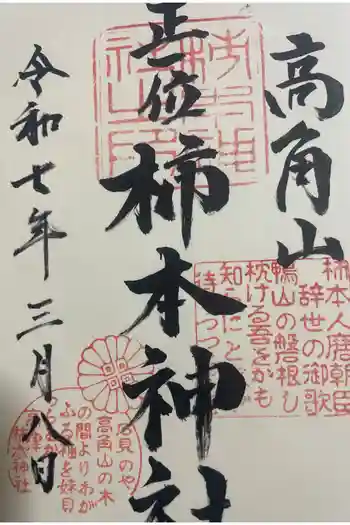 高角山
正一位
柿本神社
令和七年三月八日
柿本人麿朝臣
辞世の御歌
鴨山の磐根し
枕ける吾をかも
知らにと
待つつ
石見のや
高角山の木
の間よりわが
ふる袖を妹見
つらむか
高津
柿本神社